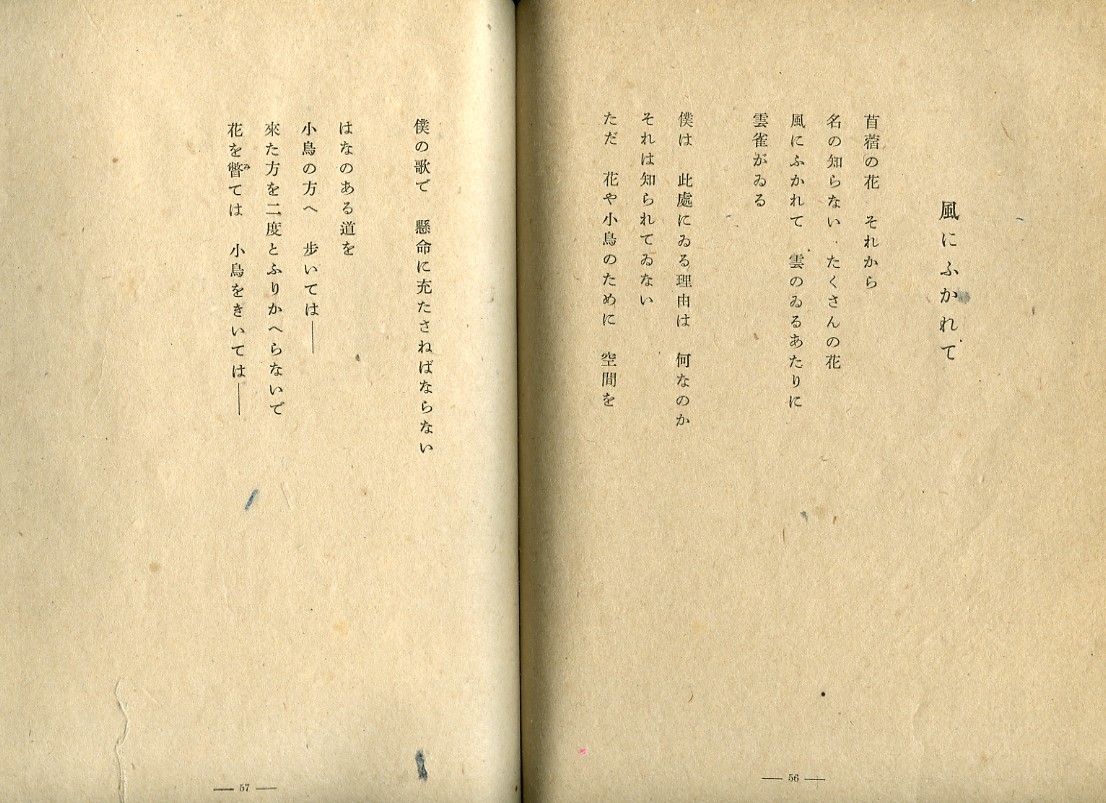 風にふかれて
苜蓿の花　それから
名の知らない　たくさんの花
風にふかれて　雲のゐるあたりに
雲雀がゐる
僕は　此處にゐる理由は　何なのか
それは知られてゐない
ただ　花や小鳥のために　空間を
56
僕の歌で　懸命に充たさねばならない
はなのある道を
小鳥の方へ　歩いては──
來た方を二度とふりかへらないで
花を瞥ては　小鳥をきいては──
み
57